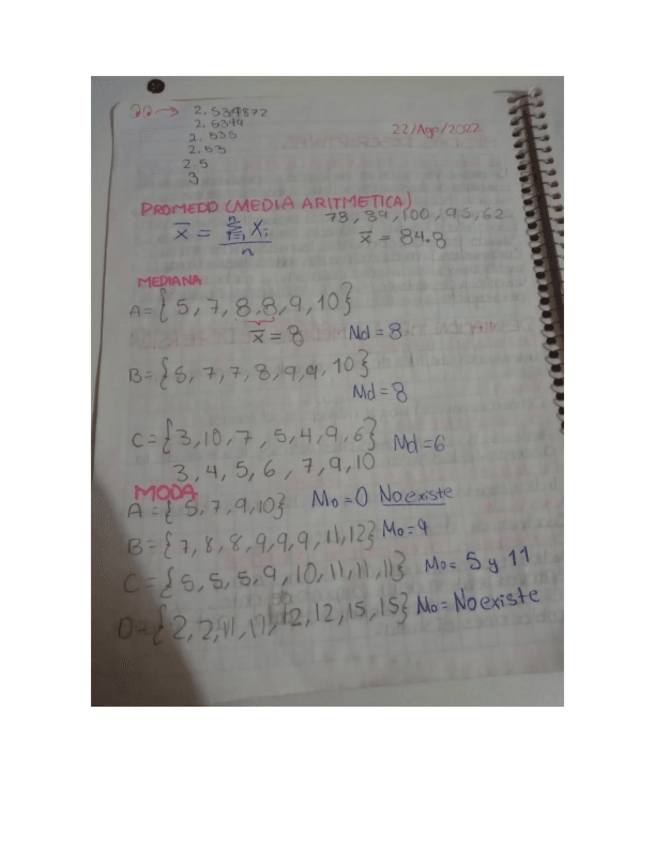 2.534872
2.5349
2.535
2.53
2.5
3
22/Ago/2022
PROMEDIO (MEDIA ARITMETICA)
78, 89, 100, 95, 62
x̄ = Σⁿᵢ₌₁ Xᵢ / n
x̄ = 84.8
MEDIANA
A = {5, 7, 8, 8, 9, 10}
x̄ = 8 Md = 8
B = {5, 7, 7, 8, 9, 9, 10}
Md = 8
C = {3, 10, 7, 5, 4, 9, 6} Md = 6
3, 4, 5, 6, 7, 9, 10
MODA
A = {5, 7, 9, 10} Mo = 0 No existe
B = {7, 8, 8, 9, 9, 9, 11, 12} Mo = 9
C = {5, 5, 5, 9, 10, 11, 11, 11} Mo = 5 y 11
D = {2, 2, 11, 11, 12, 12, 15, 15} Mo = No existe